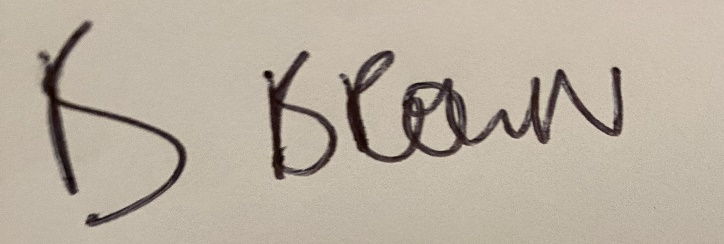 B Brown